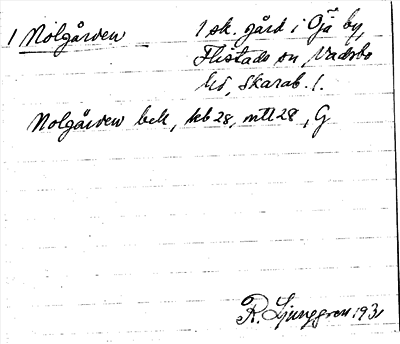 1 Nolgården 1 sk. gård i Öjä by,
Flistads sn, Vadsbo
hd, Skarab. l.
Nolgården beb, kb 28, mtl 28, G
R. Ljunggren 1931